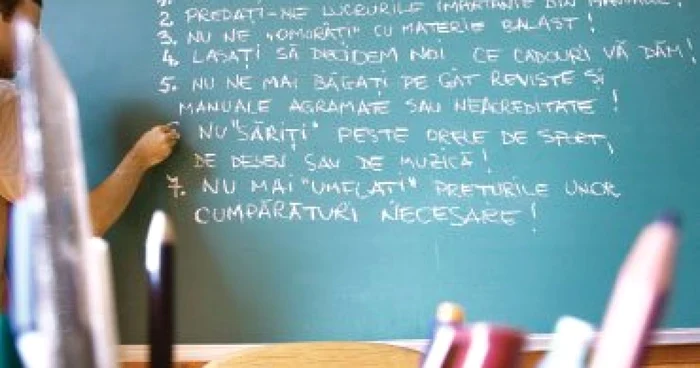 2. PREDAȚI-NE LUCRURILE IMPORTANTE DIN MANUALE!
3. NU NE "OMORÂȚI" CU MATERIE BALAST!
4. LASAȚI SĂ DECIDEM NOI CE CADOURI VĂ DĂM!
5. NU NE MAI BĂGAȚI PE GÂT REVISTE ȘI
MANUALE AGRAMATE SAU NEACREDITATE!
6. NU "SĂRIȚI" PESTE ORELE DE SPORT,
DE DESEN SAU DE MUZICĂ!
7. NU MAI "UMFLAȚI" PREȚURILE UNOR
CUMPĂRĂTURI NECESARE!